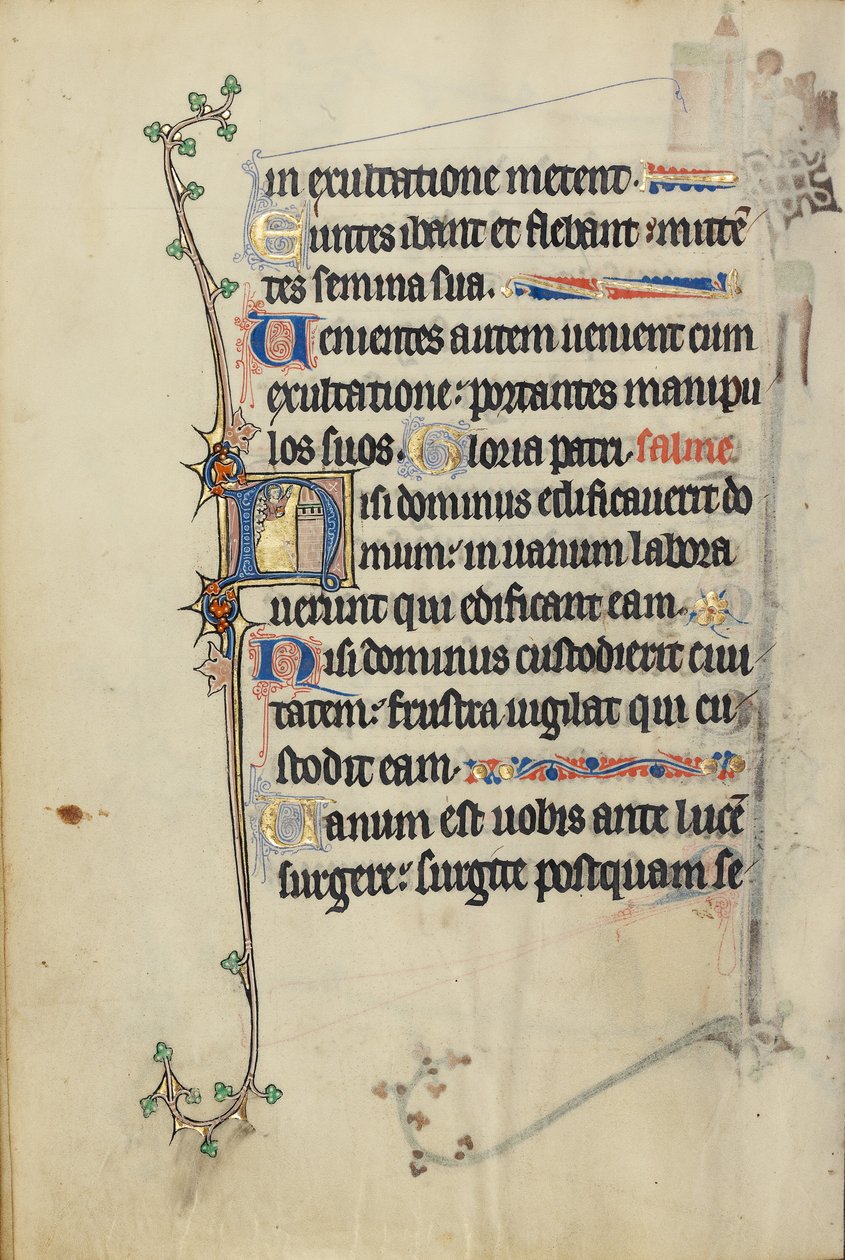 in exultatione metent.
Euntes ibant et flebant : mittē
tes semina sua.
Uenientes autem uenient cum
exultatione : portantes manipu
los suos. Gloria patri. salme
Nisi dominus edificauerit do
mum : in uanum labora
uerunt qui edificant eam.
Nisi dominus custodierit ciui
tatem : frustra uigilat qui cu
stodit eam.
Uanum est uobis ante lucē
surgere : surgite postquam se